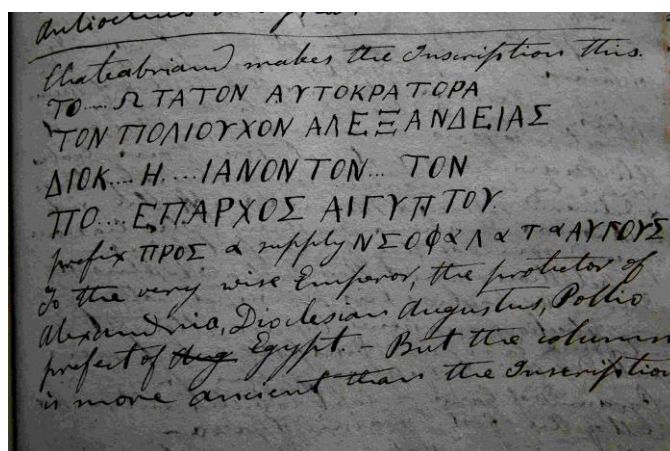 Antiochus
Chateabriand makes the Inscription this.
ΤΟ.... ΩΤΑΤΟΝ ΑΥΤΟΚΡΑΤΟΡΑ
ΤΟΝ ΠΟΛΙΟΥΧΟΝ ΑΛΕΞΑΝΔΕΙΑΣ
ΔΙΟΚ.... Η.... ΙΑΝΟΝ ΤΟΝ... ΤΟΝ
ΠΟ.... ΕΠΑΡΧΟΣ ΑΙΓΥΠΤΟΥ
prefix ΠΡΟΣ & supply ΝΣΟΦ & Λ & Τ & ΑΥΓΟΥΣ
To the very wise Emperor, the protector of
Alexandria, Dioclesian Augustus, Pollio
prefect of Aug Egypt. - But the column
is more ancient than the Inscription